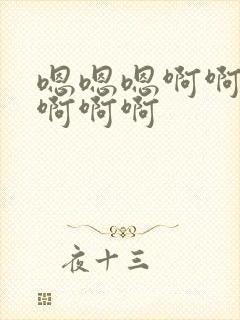 嗯嗯嗯啊啊
啊啊啊
夜十三